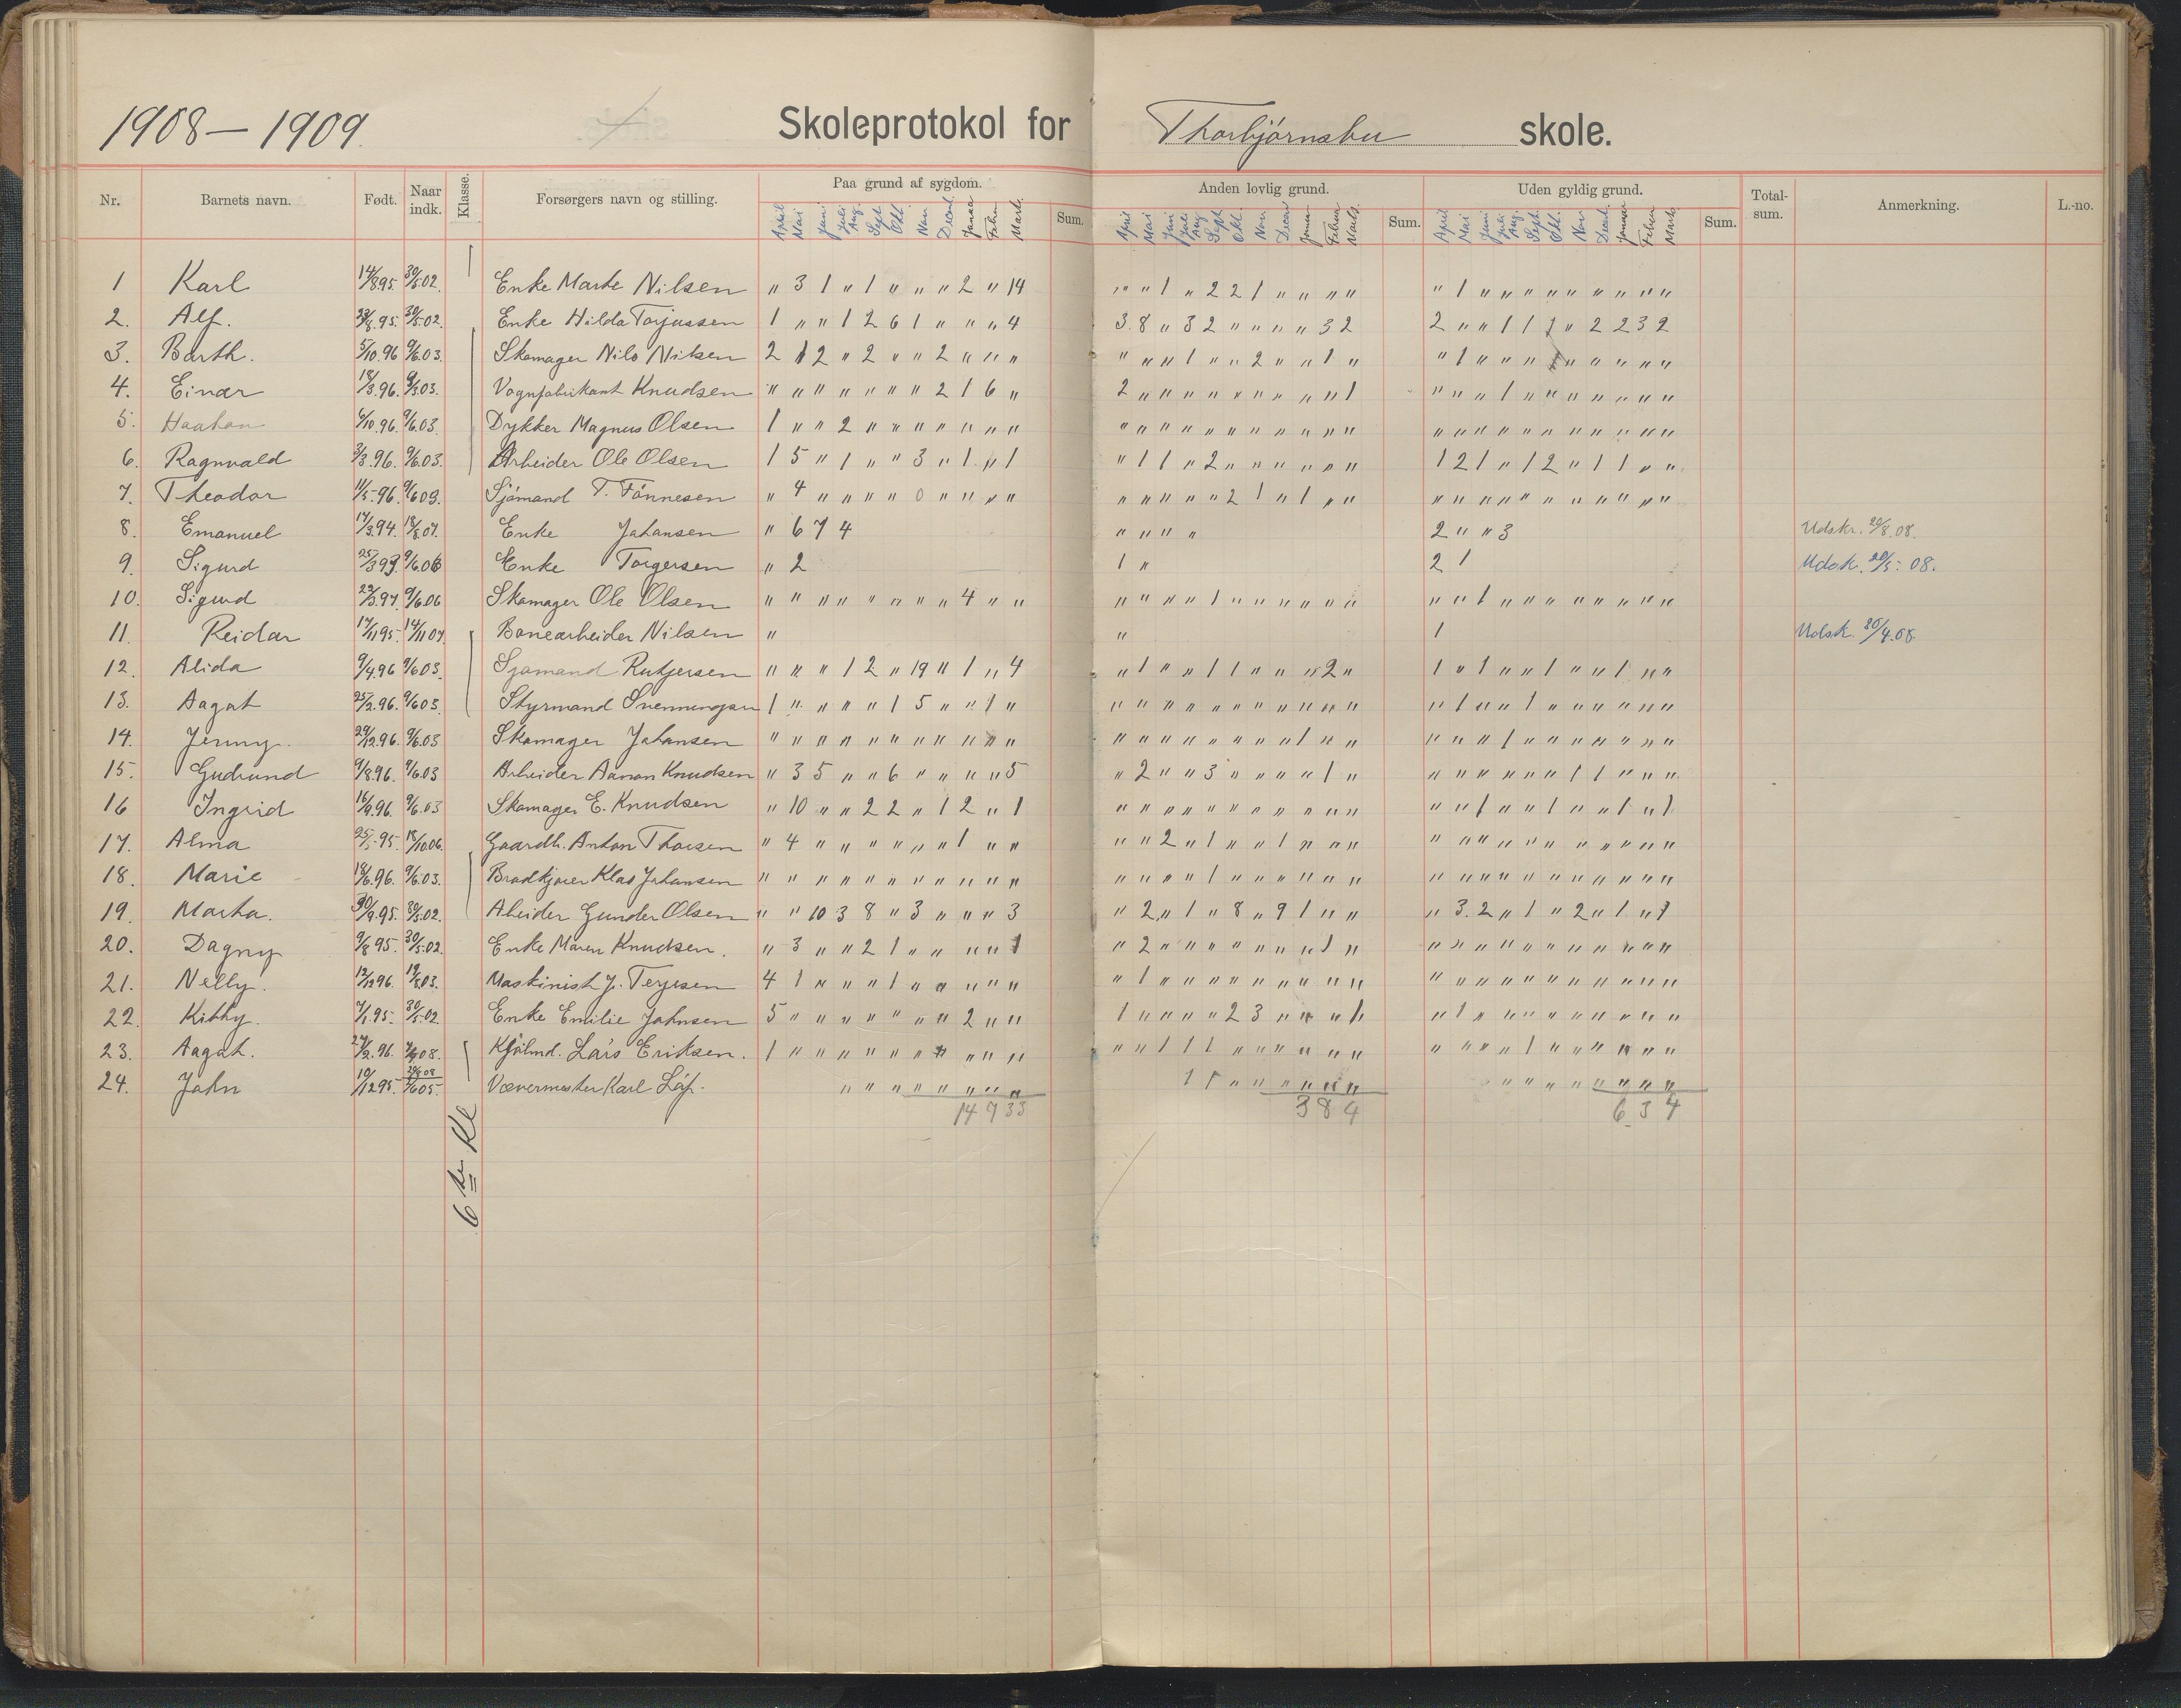 1908 – 1909. Skoleprotokol for Thorbjørnsbu skole.
Nr. Barnets navn. Født. Naar indk. Klasse. Forsørgers navn og stilling. Paa grund af sygdom. Sum. Anden lovlig grund. Sum. Uden gyldig grund. Sum. Total-sum. Anmerkning. L.-no.
April Mai Juni Juli Aug. Sept. Okt. Nov Decbr. Januar Febru Marts
1 Karl 14/8 95. 30/5 02. Enke Marte Nilsen " 3 1 " 1 " " " 2 " 14 " " 1 " 2 2 1 " " " " " 1 " " " " " " " " "
2. Alf. 28/8. 95. 30/5. 02. Enke Hilda Torjussen 1 " " 1 2 6 1 " " " 4 3. 8 " 3 2 " " " " 3 2 2 " " 1 1 1 " 2 2 3 2
3. Barth. 5/10. 96 9/6. 03. Skomager Nils Nilsen 2 1 2 " 2 " " 2 " " " " " " 1 " " 2 " " 1 " " 1 " " " " " " " " "
4. Einar 18/3. 96. 9/6. 03. Vognfabrikant Knudsen " " " " " " " 2 1 6 " 2 " " " " " " " " " 1 " " " 1 " " " " " " "
5. Haakon 6/10. 96. 9/6. 03. Dykker Magnus Olsen 1 " " 2 " " " " " " " " " " " " " " " " " " " " " " " " " " " " "
6. Ragnvald 3/3. 96. 9/6. 03. Arbeider Ole Olsen 1 5 " 1 " " 3 " 1 " 1 " 1 1 " 2 " " " " " " 1 2 1 " 1 2 " 1 1 " "
7. Theodor 11/5. 96. 9/6 03. Sjömand T. Fönnesen " 4 " " " " 0 " " " " " " " " " 2 1 " 1 " " " " " " " " " " " " "
8. Emanuel 14/3. 94. 18/8. 07. Enke Johansen " 6 7 4 " " " " 2 " " 3 Udskr. 20/8. 08.
9. Sigurd 25/3 93 9/6 06 Enke Torgersen " 2 1 " 2 1 Udsk. 20/5. 08.
10. Sigurd 9/6. 06 Skomager Ole Olsen " " " " " " " " 4 " " " " " " 1 " " " " " " " " 1 " " " " " " " "
11. Reidar 14/11 07. Banearbeider Nilsen " " 1 Udsk. 30/4. 08.
12. Alida 9/4. 96 9/6 03. Sjømand Rutjersen " " " 1 2 " 19 " 1 " 4 " 1 " " 1 1 " " " 2 " 1 " 1 " " 1 " " 1 " "
13. Aagot 25/2. 96. 9/6 03. Styrmand 1 " " " " 1 5 " " 1 " " " " " " " " " " " " " 1 " " 1 " " " " " "
14. Jenny. 29/12. 96. 9/6. 03 Skomager Johansen " " " " " " " " " " " " " " " " " " " 1 " " " " " 1 " " " " " " "
15. Gudrund 9/8 96. 9/6. 03 Arbeider Aanon Knudsen " 3 5 " " 6 " " " " 5 " 2 " " 3 " " " " 1 " " " " " " " 1 1 " " "
16 Ingrid 16/9. 96. 9/6. 03 Skomager E. Knudsen " 10 " " 2 2 " 1 2 " 1 " " " " " " " " " " " " " 1 " " 1 " " 1 " 1
17. Alma 25/5. 95. 18/10 06. Gaardb. Anton Thorsen " 4 " " " " " " 1 " " " " 2 " 1 " " 1 " " " " " " " " " " " " " "
18. Marie 18/6. 96. 9/6. 03. Brødkjører Klas Johansen " " " " " " " " " " " " " " " 1 " " " " " " " " " " " " " " " " "
19. Marta. 30/9. 95. 30/5. 02. Abeider Gunder Olsen " " 10 3 8 " 3 " " " 3 " 2 " 1 " 8 " 9 1 " " " 3. 2 " 1 " 2 " 1 " 1
20. Dagny 9/8 95. 30/5. 02. Enke Maren Knudsen. " 3 " " 2 1 " " " " 1 " 2 " " " " " " " 1 " " " " " " " " " " " "
21. Nelly. 12/12 96. 19/8 03. Maskinist J. Terjesen 4 1 " " " 1 " " " " " " 1 " " " " " " " " " " " " " " " " " " " "
22. Kitty. 7/1. 95. 30/5. 02. Enke Emilie Johnsen 5 " " " " " " " 2 " " 1 " " " " 2 3 " " " 1 " 1 " " " " " " " " "
23. Aagot. 24/2. 96. Kjølmd. Lars Eriksen. 1 " " " " " " " " " " " " 1 1 1 " " " " " " " " " " 1 " " " " " "
24. John 10/12 95. Vævermester Karl " " " " " " " " 1 1 " " " " " " " " " " " " " " "
14 7 33 3 8 4 6 3 4
6te Kl